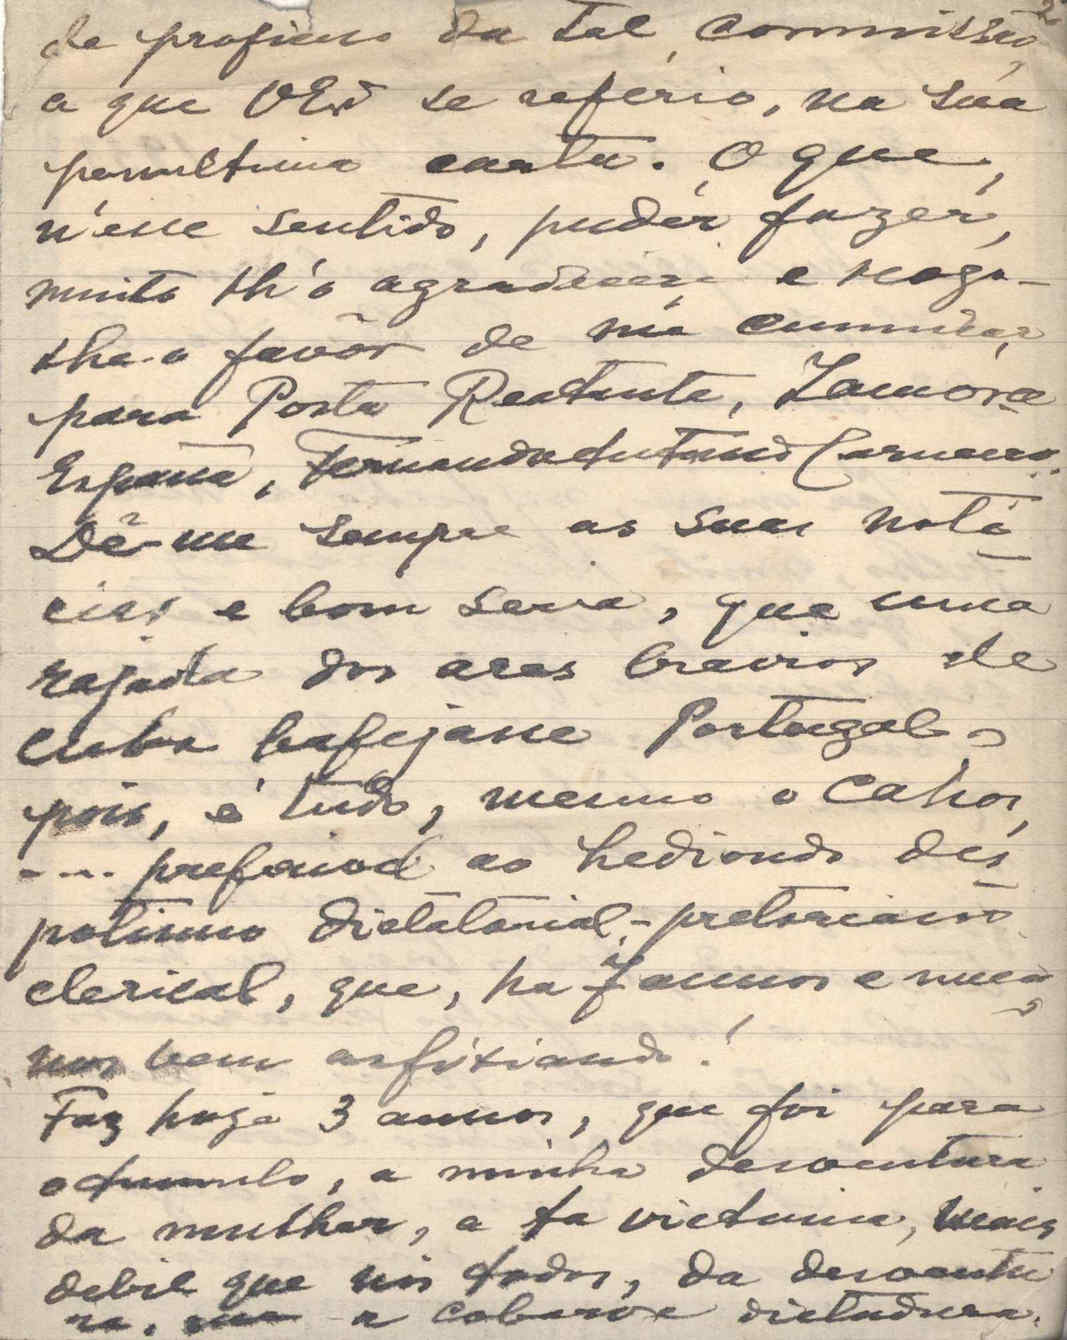 2
de da tal commissão,
a que VExª se referio, na sua
penultima carta. O que,
n'esse sentido, puder fazer,
muito lh'o agradecerei e rogo-
lhe o favôr de m'a
para Posta Restante, Zamora
España, Fernando Carneiro.
Dê-me sempre as suas notí-
cias e bom seria, que uma
rajada dos ares bravios de
Cuba bafejasse Portugal,
pois, é tudo, mesmo o Cahos,
.... preferivel ao hediondo des-
potismo dictatorial,-pretoriano
clerical, que, ha 7 annos e meio,
nos vem asfixiando!
Faz hoje 3 annos, que foi para
o tumulo, a minha desventura
da mulher, a 1ª victima, mais
debil que nós todos, da desventu
ra, a cobarde dictadura.